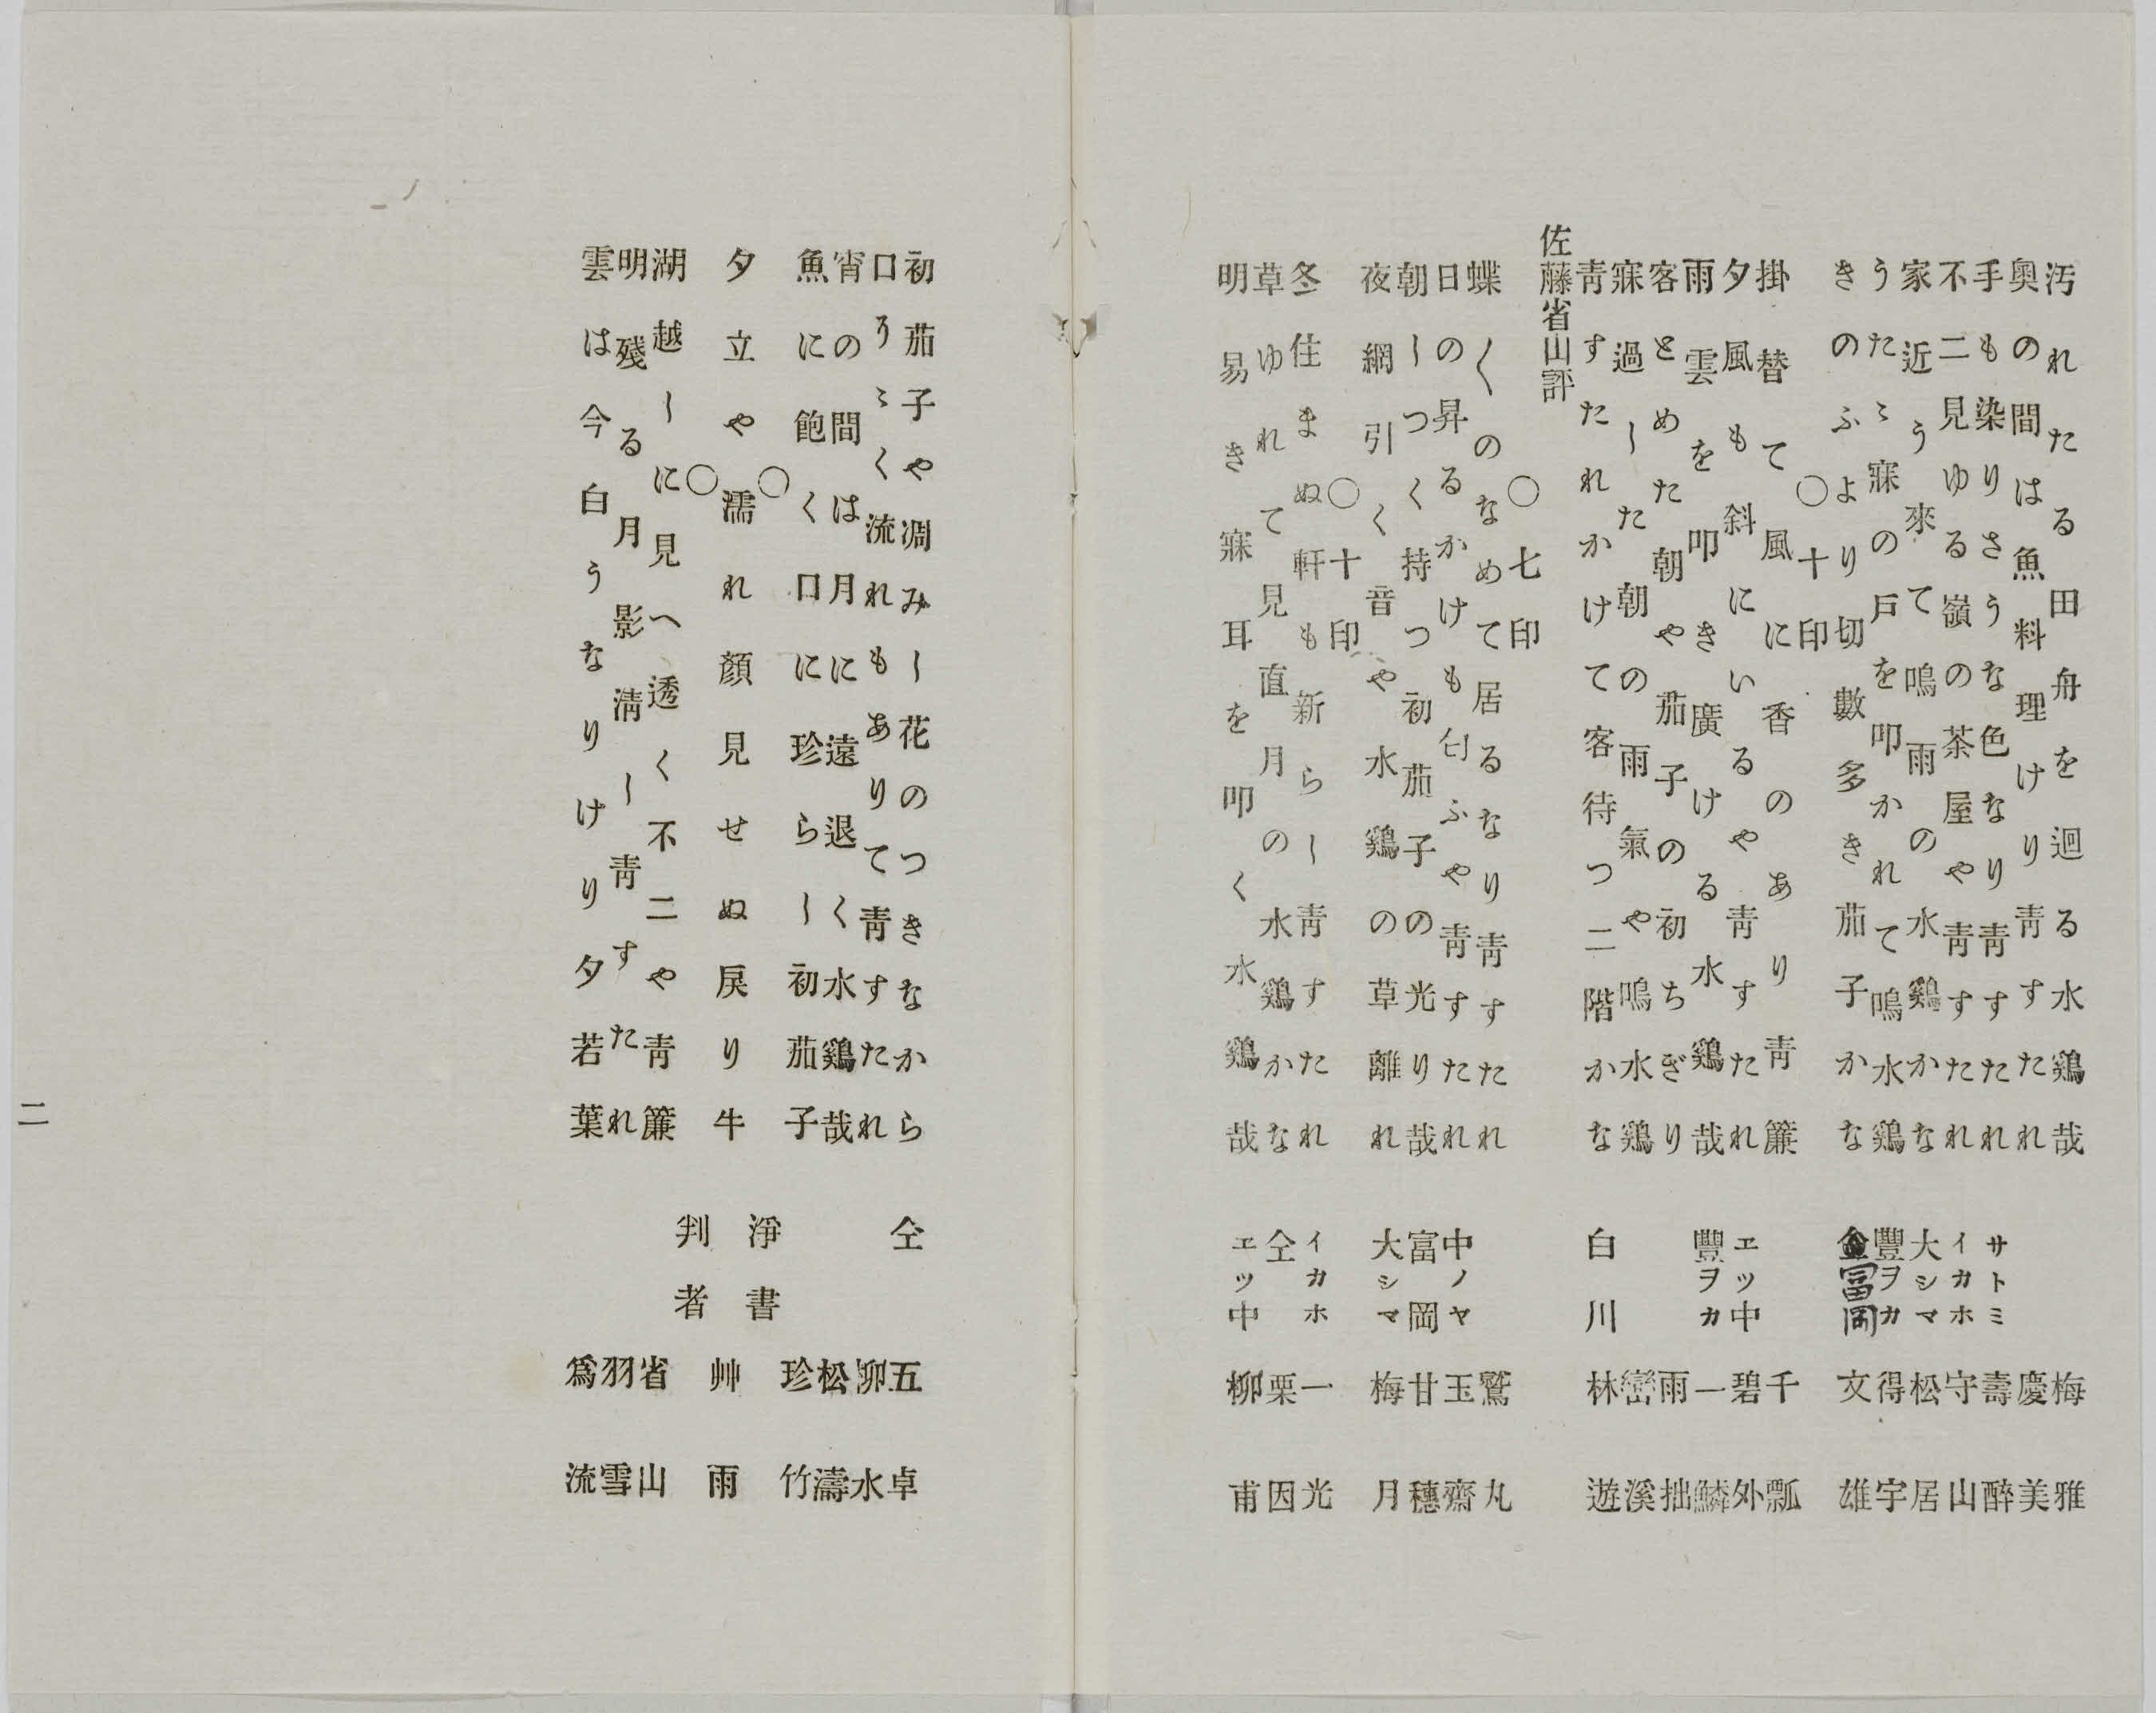 汚れたる田舟を迴る水鶏哉　梅雅
奥の間は魚料理けり青すたれ　慶美
手も染りさうな色なり青すたれ　サトミ　壽醉
不二見ゆる嶺の茶屋や青すたれ　イカホ　守山
家近う來て鳴雨の水鶏かな　大シマ　松居
うたゝ寐の戸を叩かれて鳴水鶏　豐ヲカ　得宇
きのふより切數多き茄子かな　富岡　文雄
〇十印
掛替て風に香のあり青簾　千瓢
夕風も斜にいるや青すたれ　ヱッ中　碧外
雨雲を叩き廣ける水鶏哉　豐ヲカ　一鱗
客とめた朝や茄子の初ちぎり　雨拙
寐過した朝の雨氣や鳴水鶏　巒溪
青すたれかけて客待つ二階かな　白川　林遊
佐藤省山評
〇七印
蝶〱のなめて居るなり青すたれ　鷲丸
日の昇るかけも匂ふや青すたれ　中ノヤ　玉齋
朝しつく持つ初茄子の光り哉　富岡　甘穗
夜網引く音や水鶏の草離れ　大シマ　梅月
〇十印
冬住まぬ軒も新らし青すたれ　イカホ　一光
草ゆれて見直月の水鶏かな　仝　栗因
明易き寐耳を叩く水鶏哉　ヱッ中　柳甫
初茄子や凋みし花のつきなから　仝　五卓
口ろゝく流れもありて青すたれ　柳水
宵の間は月に遠退く水鶏哉　松濤
魚に飽く口に珍らし初茄子　珍竹
〇
夕立や濡れ顏見せぬ戻り牛　淨書　艸雨
〇
湖越しに見へ透く不二や青簾　判者　省山
明殘る月影淸し青すたれ　羽雪
雲は今白うなりけり夕若葉　爲流
二